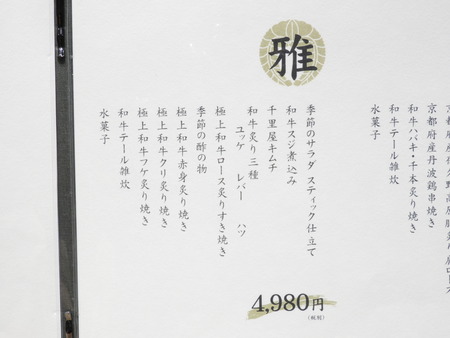 京都府産丹波鶏串焼き
和牛ハバキ・千本炙り焼き
和牛テール雑炊
水菓子
雅
季節のサラダ スティック仕立て
和牛スジ煮込み
千里屋キムチ
和牛炙り 三種
ユッケ レバー ハツ
極上和牛ロース炙りすき焼き
季節の酢の物
極上和牛赤身炙り焼き
極上和牛クリ炙り焼き
極上和牛フケ炙り焼き
和牛テール雑炊
水菓子
4,980円
(税別)